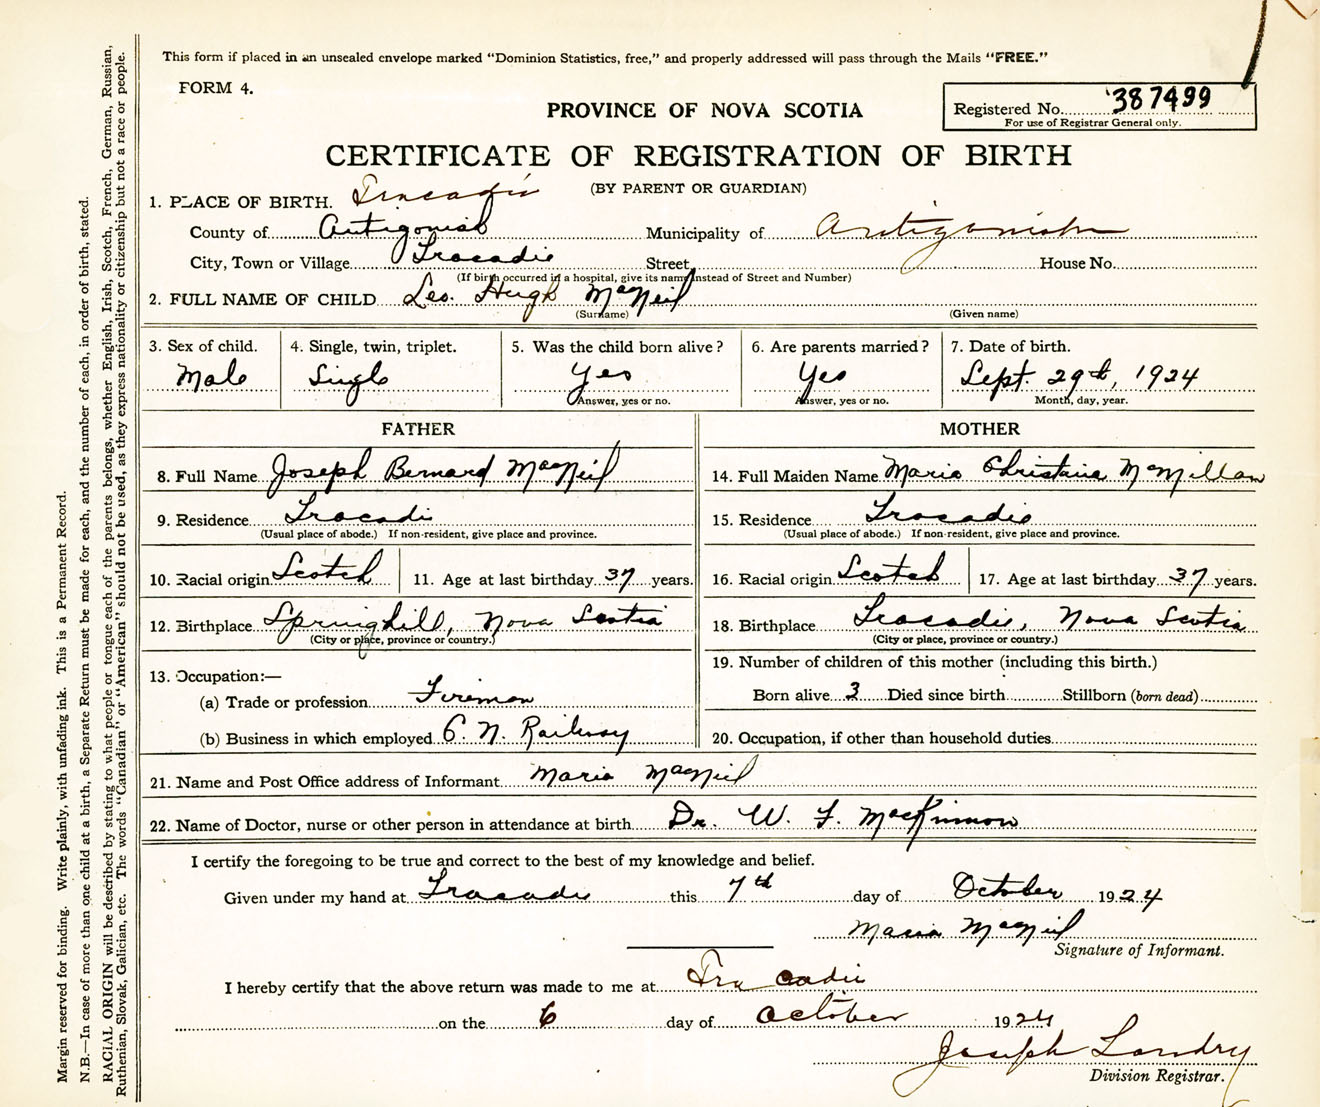 This form if placed in an unsealed envelope marked "Dominion Statistics, free," and properly addressed will pass through the Mails "FREE."
FORM 4.
Registered No. 387499
For use of Registrar General only.
PROVINCE OF NOVA SCOTIA
CERTIFICATE OF REGISTRATION OF BIRTH
(BY PARENT OR GUARDIAN)
1. PLACE OF BIRTH. Tracadie
County of Antigonish Municipality of Antigonish
City, Town or Village Tracadie Street House No.
(If birth occurred in a hospital, give its name instead of Street and Number)
2. FULL NAME OF CHILD Leo. Hugh MacNeil
(Surname) (Given name)
3. Sex of child. 4. Single, twin, triplet. 5. Was the child born alive? 6. Are parents married? 7. Date of birth.
Male Single Yes Yes Sept. 29th, 1924
Answer, yes or no. Answer, yes or no. Month, day, year.
FATHER MOTHER
8. Full Name Joseph Bernard MacNeil 14. Full Maiden Name Maria Christina McMillan
9. Residence Tracadie 15. Residence Tracadie
(Usual place of abode.) If non-resident, give place and province. (Usual place of abode.) If non-resident, give place and province.
10. Racial origin Scotch 11. Age at last birthday 37 years. 16. Racial origin Scotch 17. Age at last birthday 37 years.
12. Birthplace Springhill, Nova Scotia 18. Birthplace Tracadie, Nova Scotia
(City or place, province or country.) (City or place, province or country.)
13. Occupation:— 19. Number of children of this mother (including this birth.)
(a) Trade or profession Fireman Born alive 3 Died since birth Stillborn (born dead)
(b) Business in which employed C. N. Railway 20. Occupation, if other than household duties
21. Name and Post Office address of Informant Maria MacNeil
22. Name of Doctor, nurse or other person in attendance at birth Dr. W. F. MacKinnon
I certify the foregoing to be true and correct to the best of my knowledge and belief.
Given under my hand at Tracadie this 7th day of October 1924
Maria MacNeil
Signature of Informant.
I hereby certify that the above return was made to me at Tracadie
on the 6 day of October 1924
Joseph Landry
Division Registrar.
Margin reserved for binding. Write plainly, with unfading ink. This is a Permanent Record.
N.B.—In case of more than one child at a birth, a Separate Return must be made for each, and the number of each, in order of birth, stated.
RACIAL ORIGIN will be described by stating to what people or tongue each of the parents belongs, whether English, Irish, Scotch, French, German, Russian,
Ruthenian, Slovak, Galician, etc. The words "Canadian" or "American" should not be used, as they express nationality or citizenship but not a race or people.